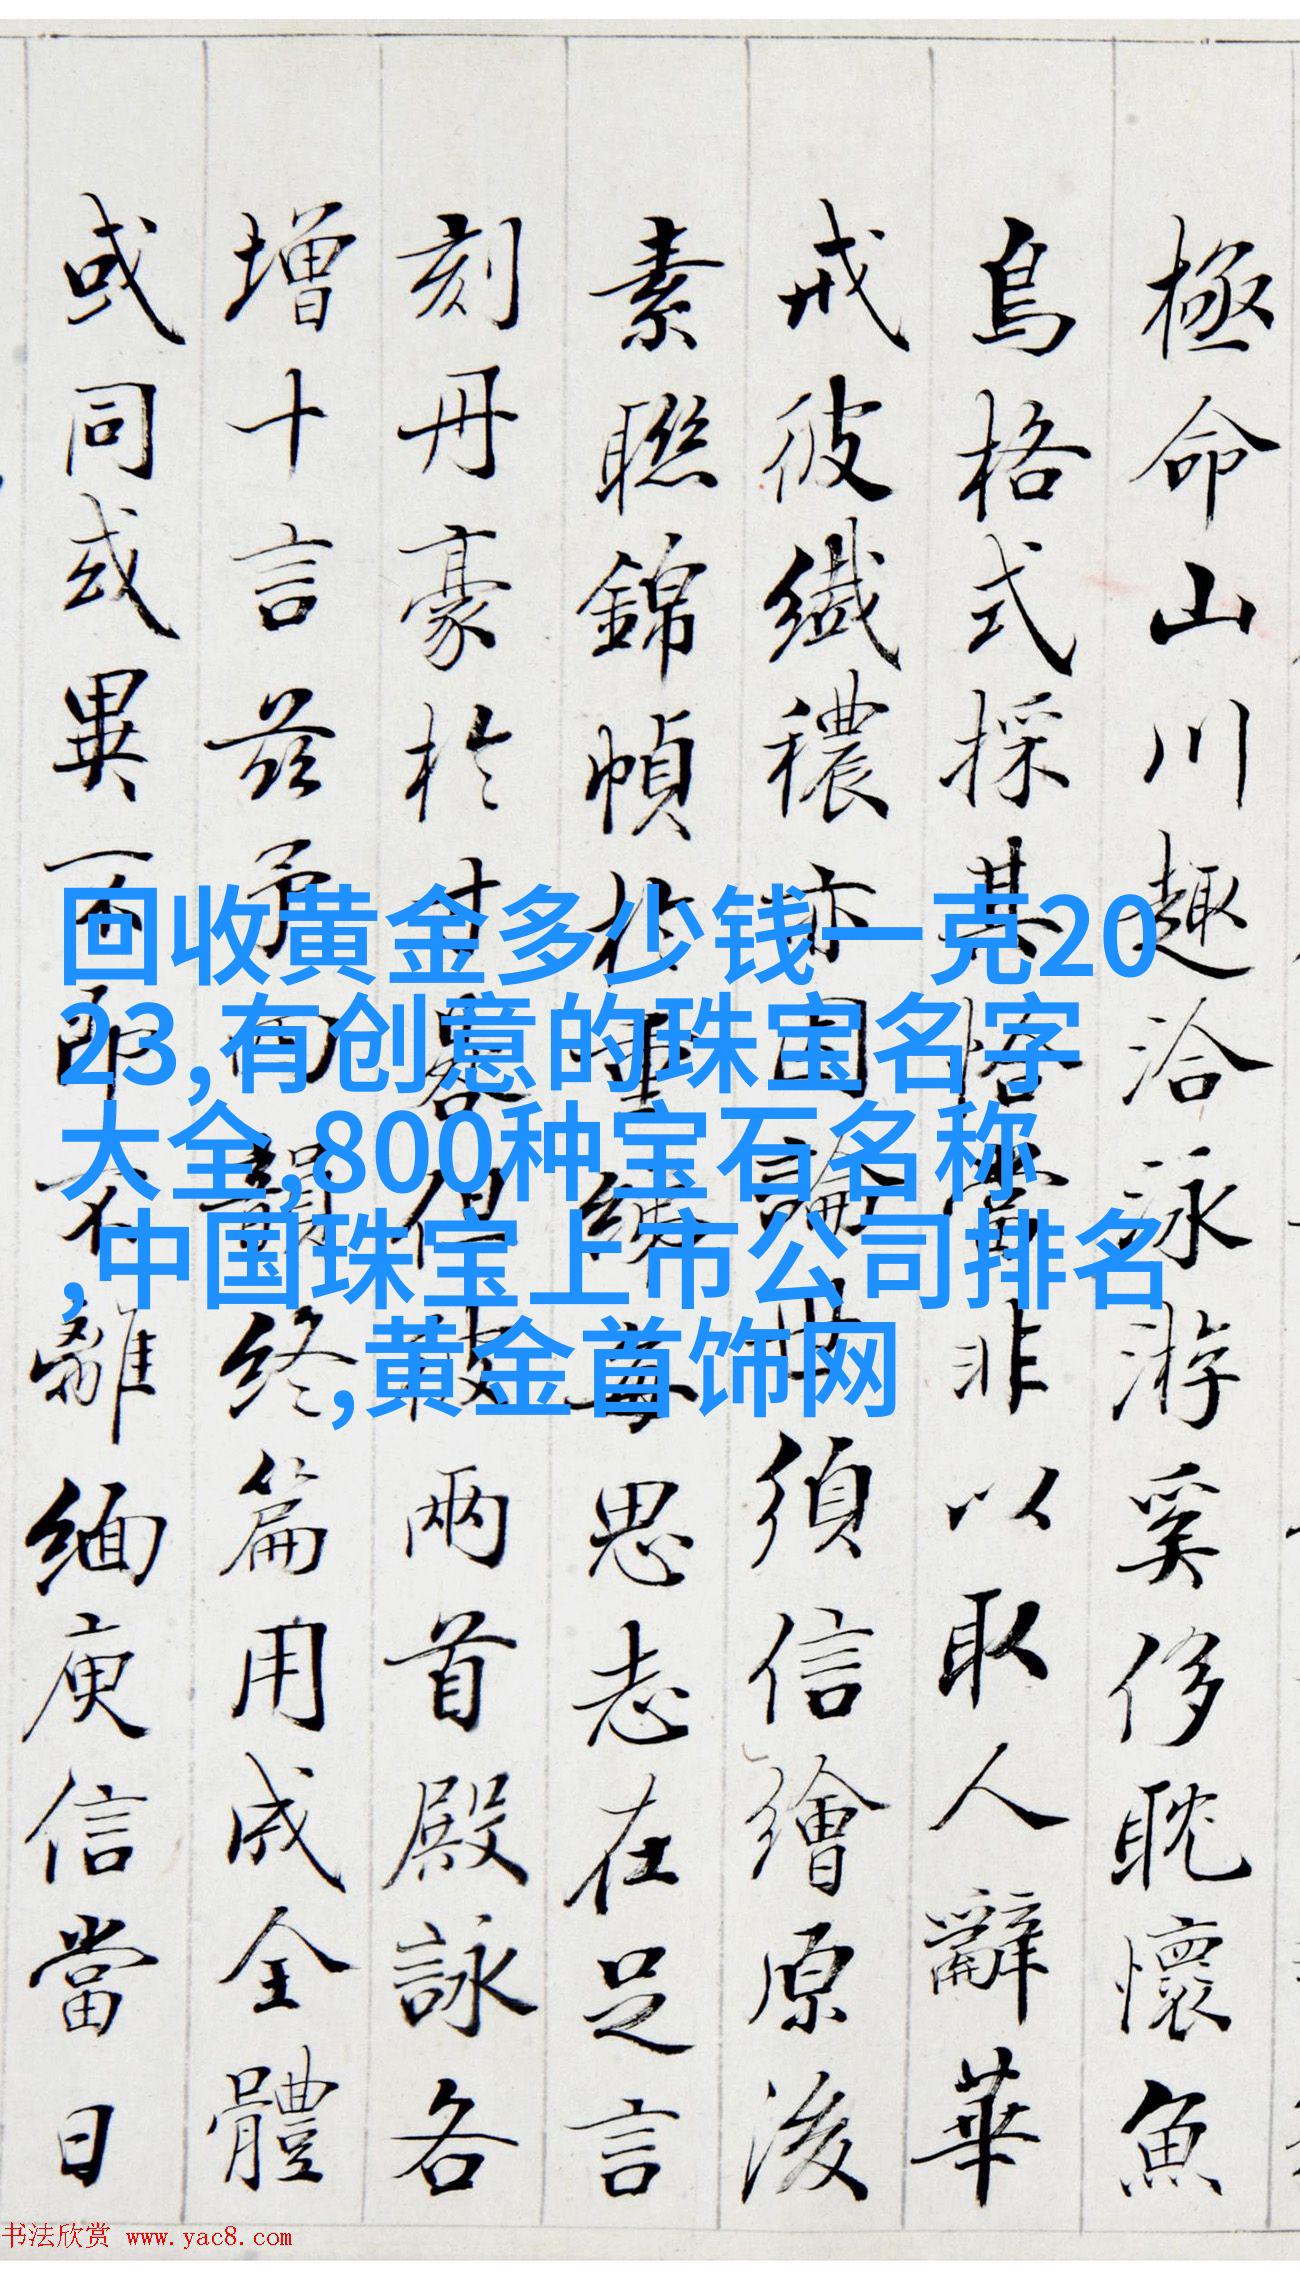 極命山川趣洽泳游奚侈耽懷魚
鳥格式採其悟賞非以取人辭華
戒彼纖穠亦因論世須信繪原後
素聯錦幀於重縹每思志在足言
刻丹豪於寸晷但彼兩首殿詠各
增十言茲予四韻終篇用成全體
或同或異不即不離緬庚信當日
回收黄金多少钱一克20
23,有创意的珠宝名字
大全,800种宝石名称
,中国珠宝上市公司排名
,黄金首饰网
书法欣赏 www.yac8.com